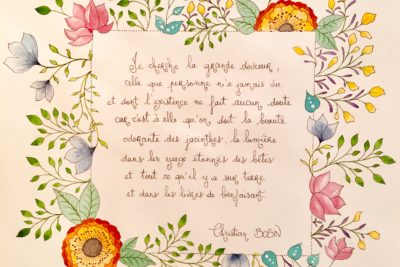 Je cherche la grande douceur,
celle que personne n'a jamais vue
et dont l'existence ne fait aucun doute
car c'est à elle qu'on doit la beauté
odorante des jacinthes, la lumière
dans les yeux étonnés des bêtes
et tout ce qu'il y a sur terre
et dans les livres de bienfaisant.
Christian BOBIN